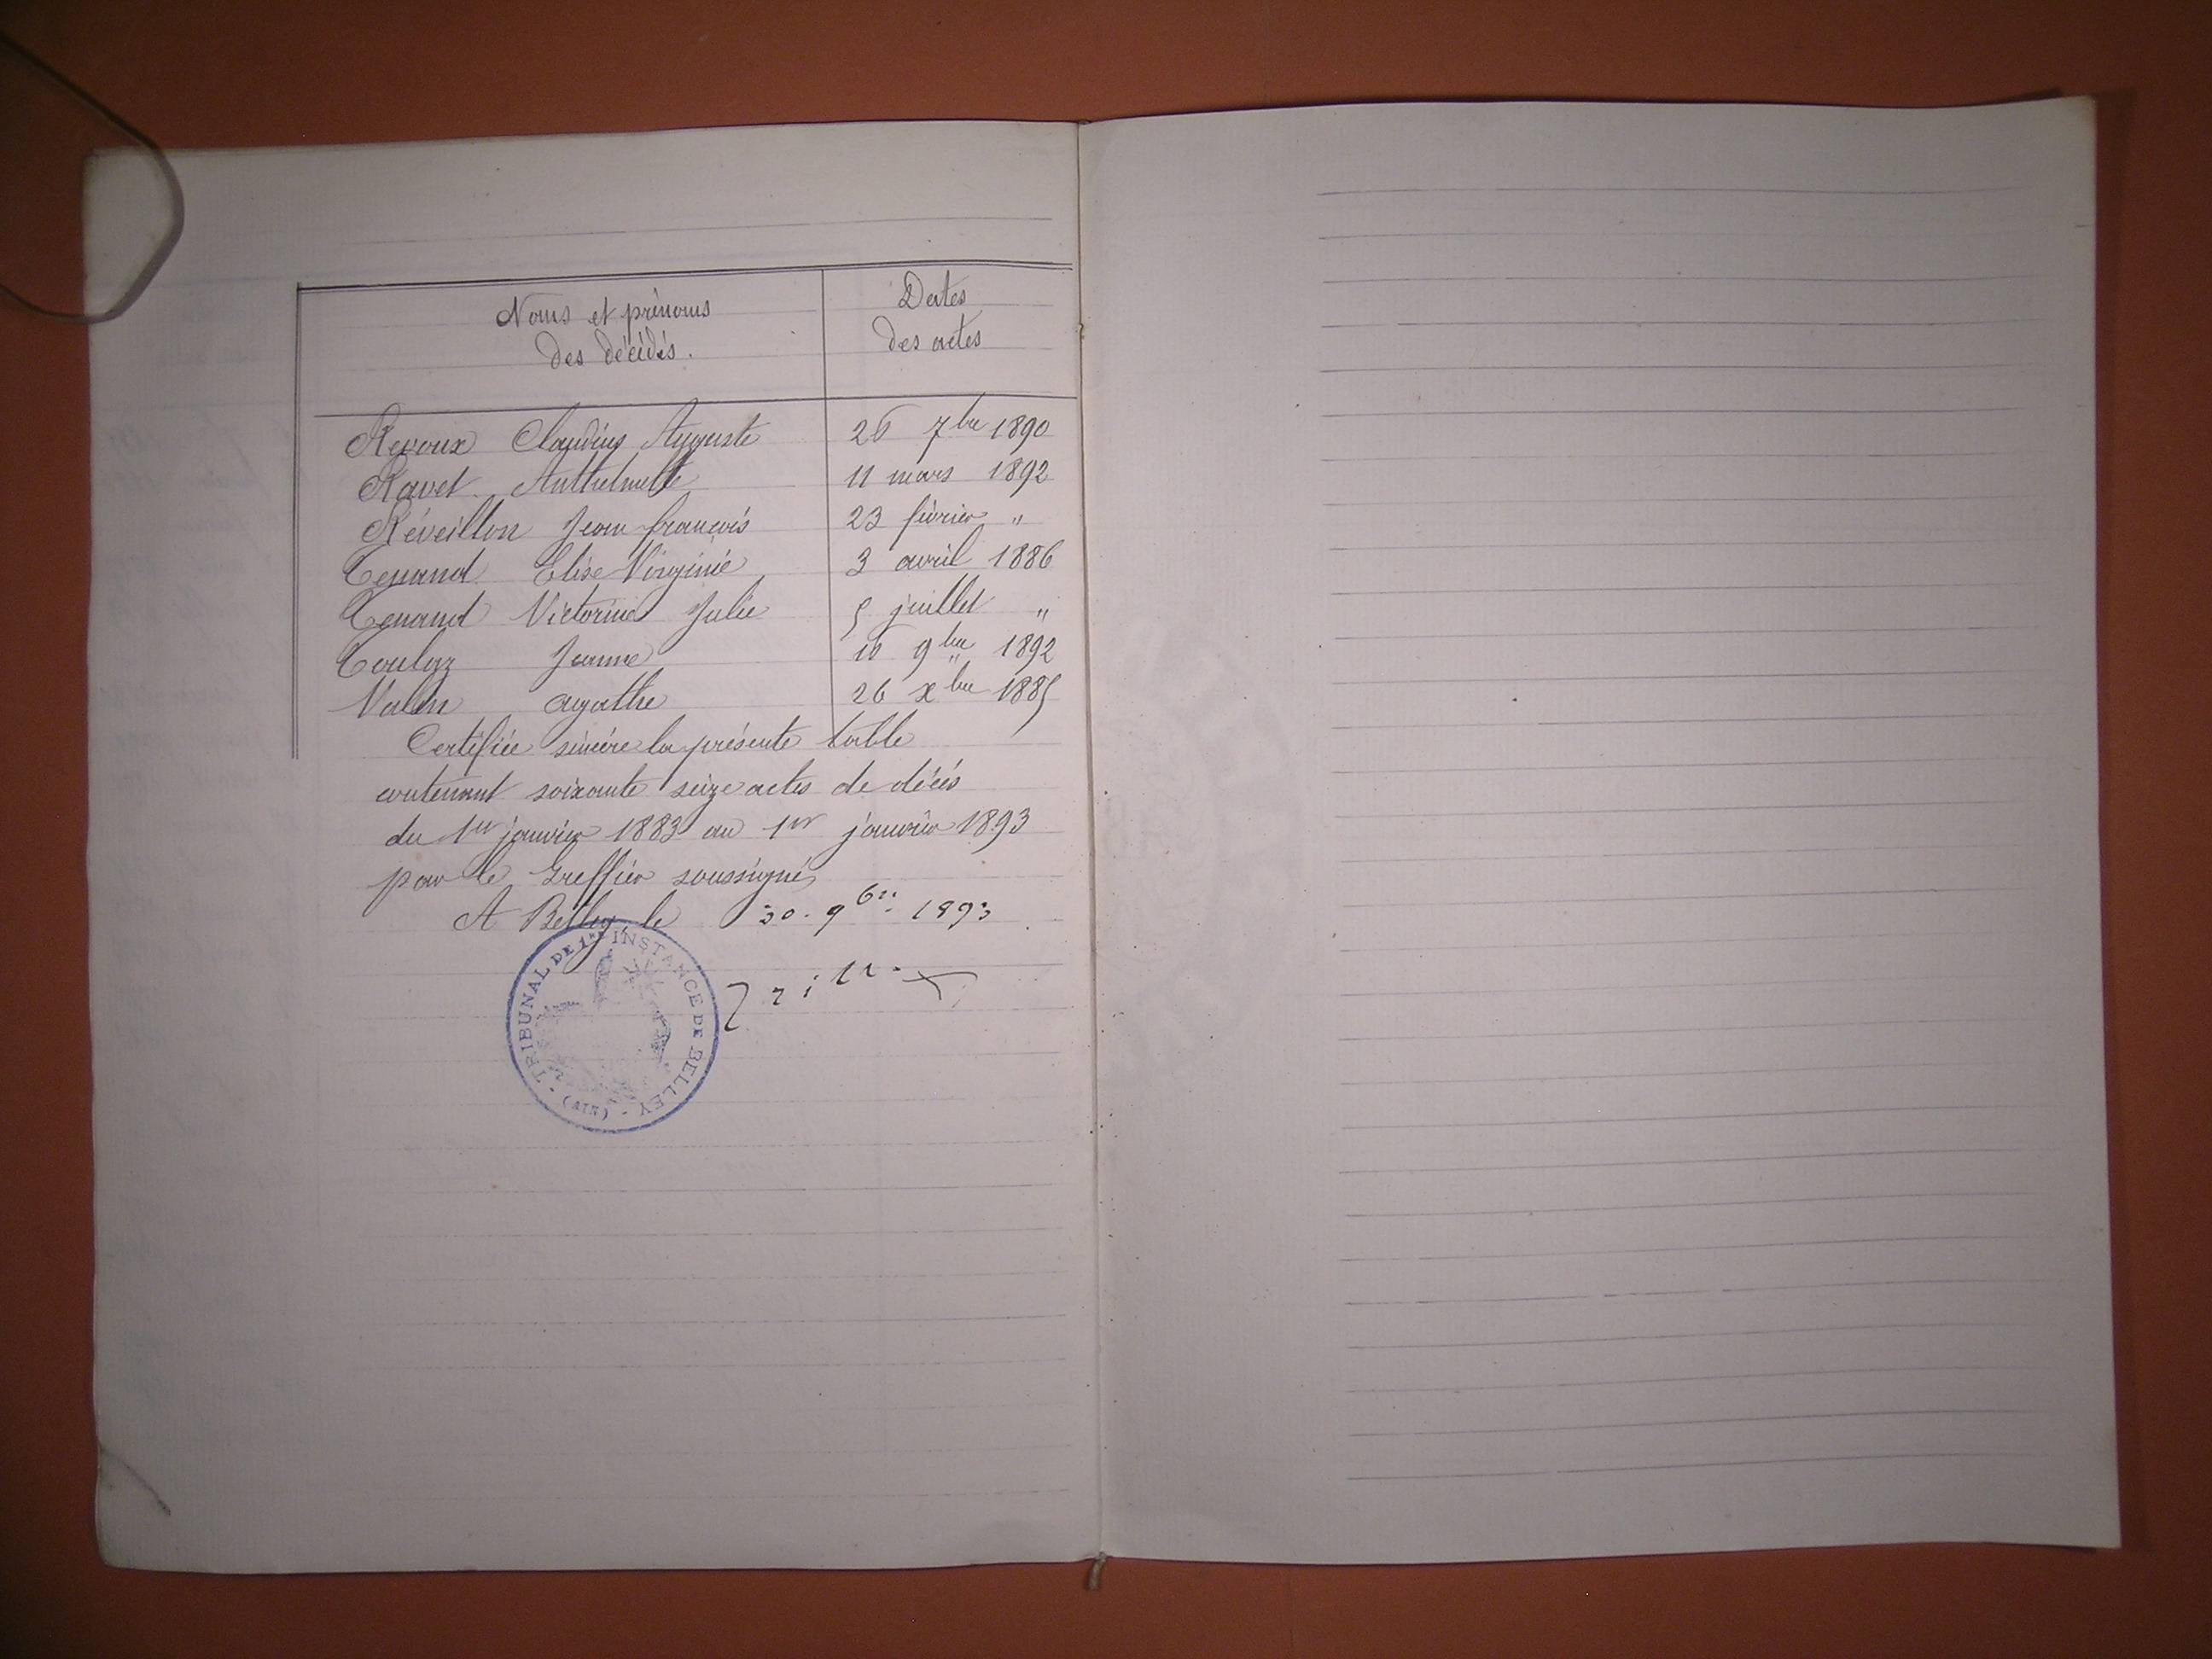 Noms et prénoms
des décédés.
Dates
des actes
Revoux Claudius Auguste 26 7bre 1890
Ravet Anthelmette 11 mars 1892
Réveillon Jean françois 23 février "
Tenand Elise Virginie 3 avril 1886
Tenand Victorine Julie 5 juillet "
Jeanne 10 9bre 1892
agathe 26 xbre 1885
Certifiée sincère la présente table
contenant soixante seize actes de décès
du 1er janvier 1883 au 1er janvier 1893
par le Greffier soussigné
A Belley le 30. 9bre 1893
TRIBUNAL DE 1re INSTANCE DE BELLEY
(AIN)